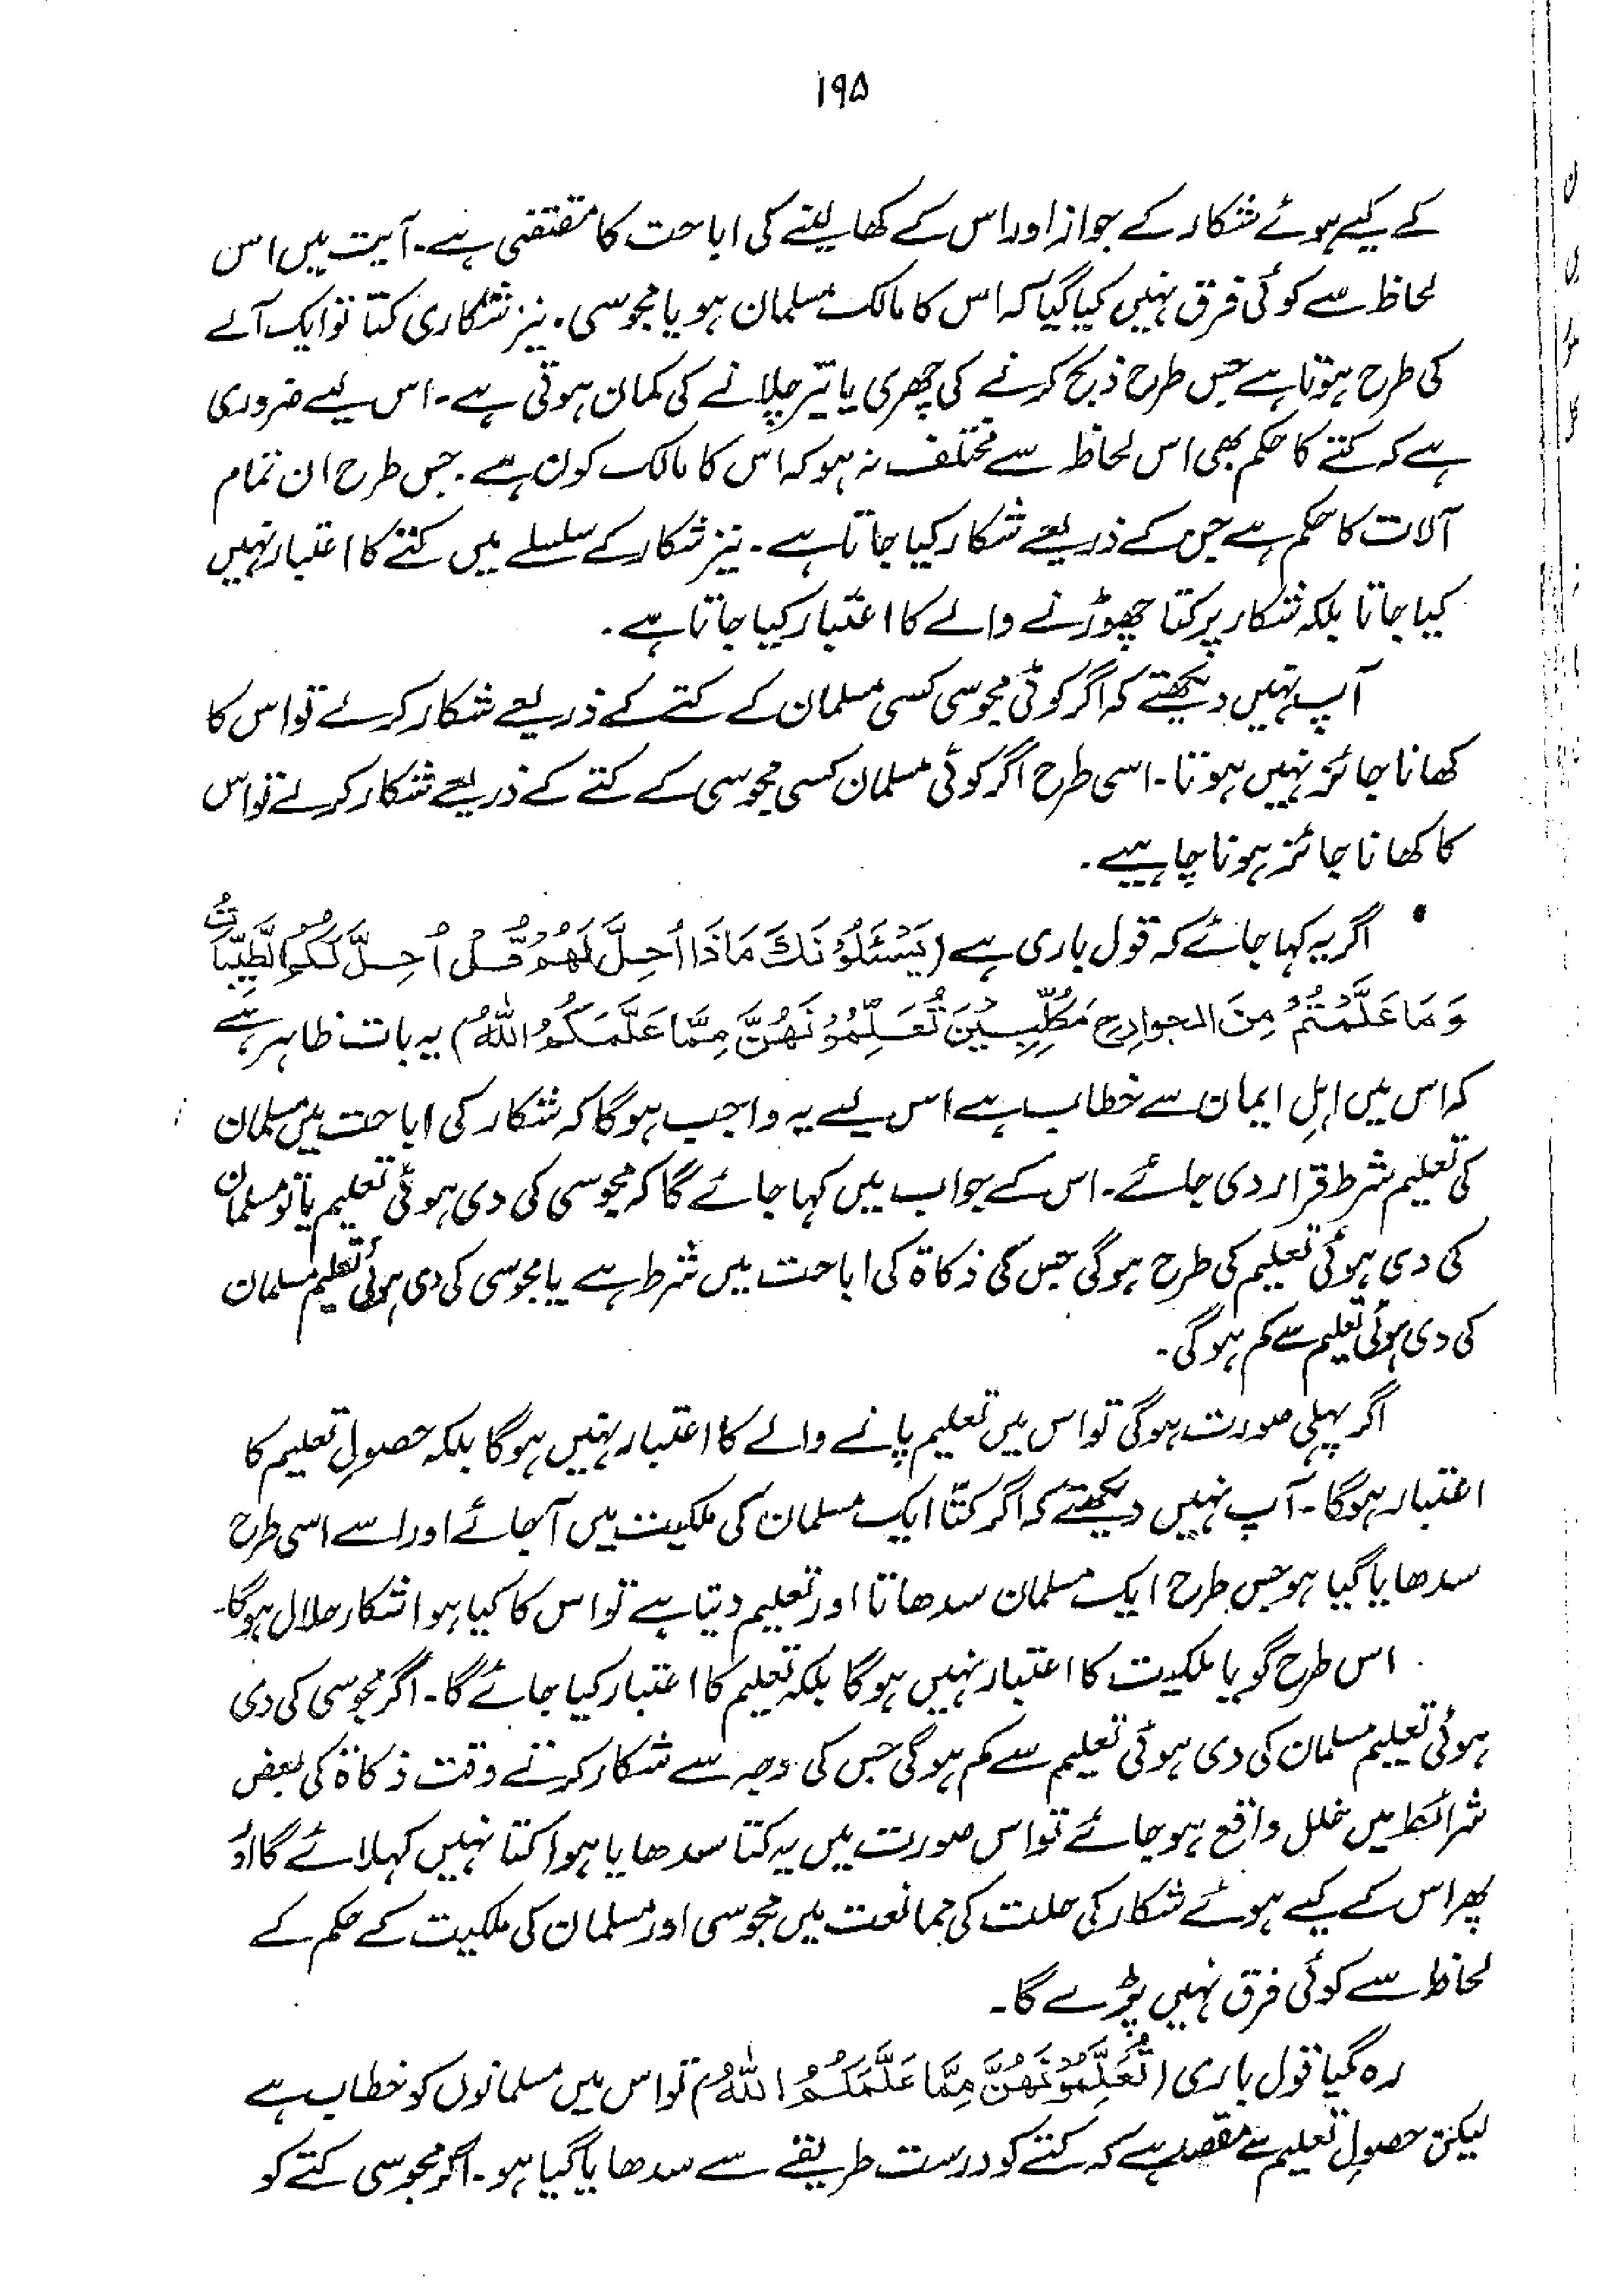 ۱۹۵
کے کیے ہوئے شکار کے جواز اور اس کے کھا لینے کی اباحت کا مقتضی ہے۔ آیت میں اس
لحاظ سے کوئی فرق نہیں کیا گیا کہ اس کا مالک مسلمان ہو یا مجوسی۔ نیز شکاری کتا تو ایک آلے
کی طرح ہوتا ہے جس طرح ذبح کرنے کی چھری یا تیر چلانے کی کمان ہوتی ہے۔ اس لیے ضروری
ہے کہ کتے کا حکم بھی اس لحاظ سے مختلف نہ ہو کہ اس کا مالک کون ہے۔ جس طرح ان تمام
آلات کا حکم ہے جس کے ذریعے شکار کیا جاتا ہے۔ نیز شکار کے سلسلے میں کتے کا اعتبار نہیں
کیا جاتا بلکہ شکار پر کتا چھوڑنے والے کا اعتبار کیا جاتا ہے۔
آپ نہیں دیکھتے کہ اگر کوئی مجوسی کسی مسلمان کے کتے کے ذریعے شکار کرلے تو اس کا
کھانا جائز نہیں ہوتا۔ اسی طرح اگر کوئی مسلمان کسی مجوسی کے کتے کے ذریعے شکار کرلے تو اس
کا کھانا جائز ہونا چاہیے۔
اگر یہ کہا جائے کہ قول باری ہے (يَسْئَلُوْنَكَ مَاذَا اُحِلَّ لَهُمْ قُلْ اُحِلَّ لَكُمُ الطَّيِّبَاتُ
وَمَا عَلَّمْتُمْ مِنَ الجوارِحِ مُكَلِّبِيْنَ تُعَلِّمُوْنَهُنَّ مِمَّا عَلَّمَكُمُ اللّٰهُ) یہ بات ظاہر ہے
کہ اس میں اہلِ ایمان سے خطاب ہے اس لیے یہ واجب ہوگا کہ شکار کی اباحت میں مسلمان
کی تعلیم شرط قرار دی جائے۔ اس کے جواب میں کہا جائے گا کہ مجوسی کی دی ہوئی تعلیم یا تو مسلمان
کی دی ہوئی تعلیم کی طرح ہوگی جس کی ذکاۃ کی اباحت میں شرط ہے یا مجوسی کی دی ہوئی تعلیم مسلمان
کی دی ہوئی تعلیم سے کم ہوگی۔
اگر پہلی صورت ہوگی تو اس میں تعلیم پانے والے کا اعتبار نہیں ہوگا بلکہ حصولِ تعلیم کا
اعتبار ہوگا۔ آپ نہیں دیکھتے کہ اگر کتّا ایک مسلمان کی ملکیت میں آجائے اور اسے اسی طرح
سدھایا گیا ہو جس طرح ایک مسلمان سدھاتا اور تعلیم دیتا ہے تو اس کا کیا ہوا شکار حلال ہوگا۔
اس طرح گویا ملکیت کا اعتبار نہیں ہوگا بلکہ تعلیم کا اعتبار کیا جائے گا۔ اگر مجوسی کی دی
ہوئی تعلیم مسلمان کی دی ہوئی تعلیم سے کم ہوگی جس کی وجہ سے شکار کرتے وقت ذکاۃ کی بعض
شرائط میں خلل واقع ہوجائے تو اس صورت میں یہ کتا سدھایا ہوا کتا نہیں کہلائے گا اور
پھر اس کے کیے ہوئے شکار کی حلت کی ممانعت میں مجوسی اور مسلمان کی ملکیت کے حکم کے
لحاظ سے کوئی فرق نہیں پڑے گا۔
رہ گیا قول باری (تُعَلِّمُوْنَهُنَّ مِمَّا عَلَّمَكُمُ اللّٰهُ) تو اس میں مسلمانوں کو خطاب ہے
لیکن حصولِ تعلیم سے مقصد ہے کہ کتے کو درست طریقے سے سدھایا گیا ہو۔ اگر مجوسی کتے کو